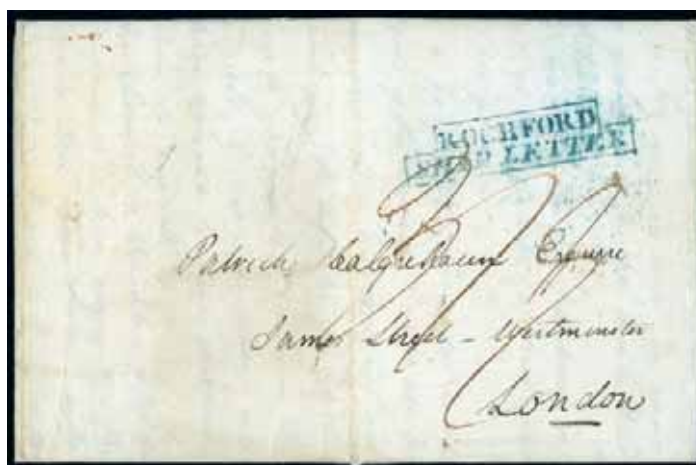 ROCHFORD
SHIP LETTER
Patrick Colquhoun Esquire
James Street - Westminster
London